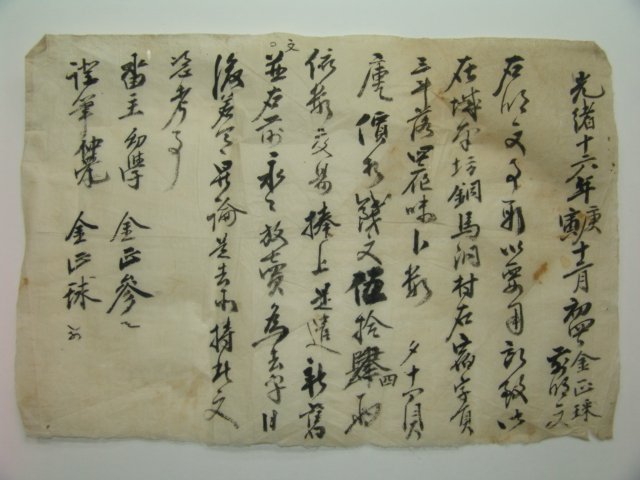 光緖十六年庚寅十二月初四日金正球前明文
右明文事段以要用所致
在城南坊銅馬洞村右宿字員
三斗落只㢱味卜數 夕十四負
庫 價折錢文伍拾肆四兩
依數交易捧上是遣新舊
文並右前永永放賣爲去乎日
後若有異論是去等持此文
憑考事
畓主 幼學 金正參
證筆 仲兄 金正球